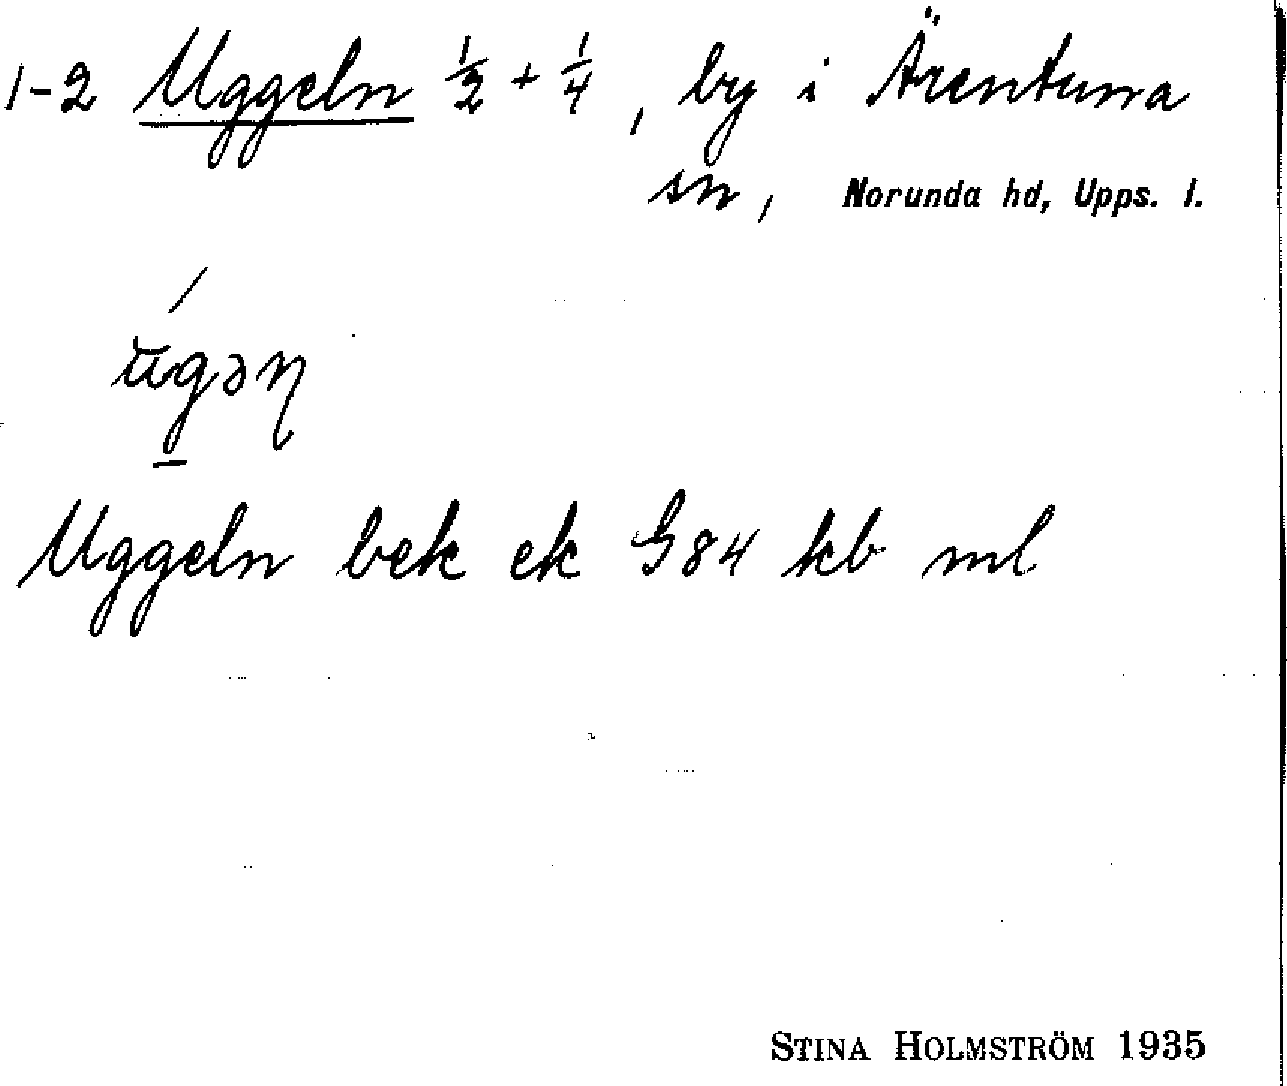 1-2 Uggeln ½ + ¼, by i Ärentuna
sn, Norunda hd, Upps. l.
Uggeln bek ek G84 kb ml
STINA HOLMSTRÖM 1935